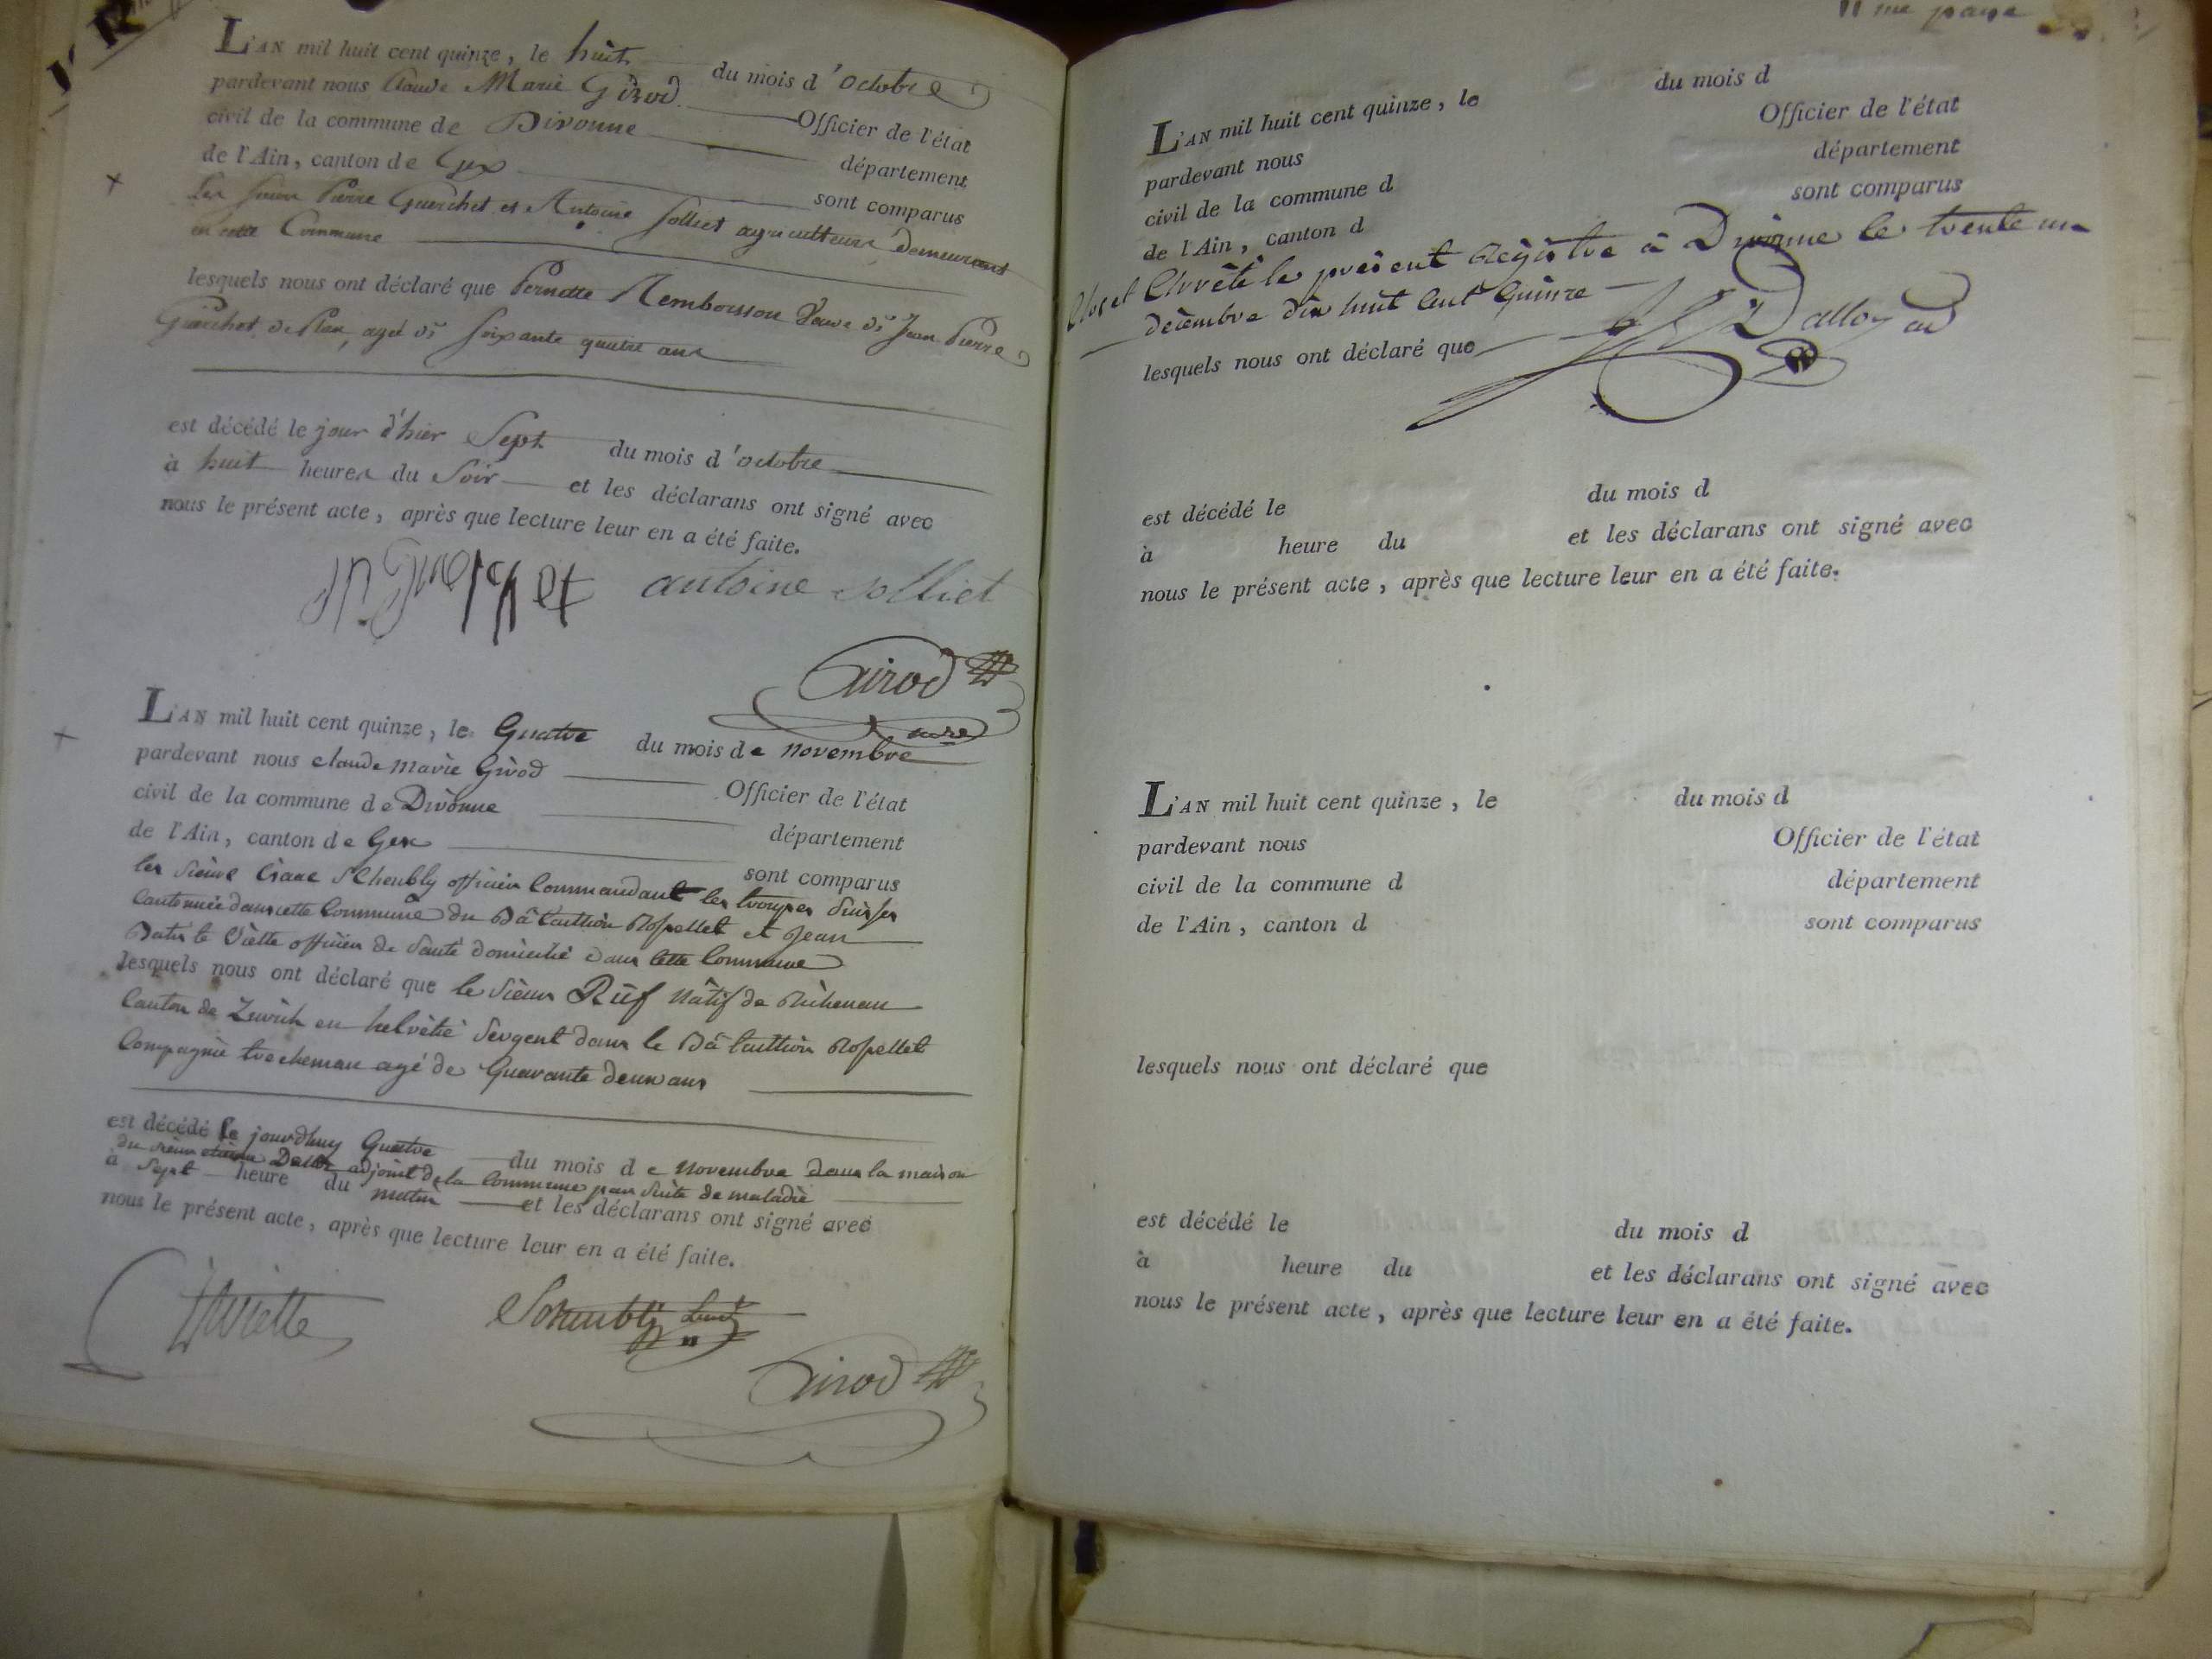 L'AN mil huit cent quinze, le huit du mois d'octobre
pardevant nous Claude Marie Girod Officier de l'état
civil de la commune de Divonne département
de l'Ain, canton de Gex sont comparus
Les Pierre Guerchet et Antoine Solliet agriculteurs demeurant
en cette Commune
lesquels nous ont déclaré que Pernette Remboisson Veuve de Jean Pierre
Guerchet de agé de soixante quatre ans
est décédé le jour d'hier Sept du mois d'octobre
à huit heures du Soir et les déclarans ont signé avec
nous le présent acte, après que lecture leur en a été faite.
antoine solliet
Girod
L'AN mil huit cent quinze, le Quatre du mois de novembre
pardevant nous claude marie Girod Officier de l'état
civil de la commune de Divonne département
de l'Ain, canton de Gex sont comparus
les sieurs officier Commandant les trouppes Suisses
Cantonnée dans cette Commune du Bâtaillion Rospellet et Jean
Viette officier de santé domicilié dans cette Commune
lesquels nous ont déclaré que le sieur Rüf nâtif de
Canton de Zurich en helvétie Sergent dans le Bâtaillion Rospellet
Compagnie agé de Quarante deux ans
est décédé le jourdhuy Quatre du mois de novembre dans la maison
du sieur adjoint de la Commune par suite de maladie
à Sept heure du matin et les déclarans ont signé avec
nous le présent acte, après que lecture leur en a été faite.
Viette
Girod
11me page
L'AN mil huit cent quinze, le du mois d
pardevant nous Officier de l'état
civil de la commune d département
de l'Ain, canton d sont comparus
Clos et Arrêté le présent Régistre à Divonne le trente un
décembre dix huit Cent Quinze
Dalloz
lesquels nous ont déclaré que
est décédé le du mois d
à heure du et les déclarans ont signé avec
nous le présent acte, après que lecture leur en a été faite.
L'AN mil huit cent quinze, le du mois d
pardevant nous Officier de l'état
civil de la commune d département
de l'Ain, canton d sont comparus
lesquels nous ont déclaré que
est décédé le du mois d
à heure du et les déclarans ont signé avec
nous le présent acte, après que lecture leur en a été faite.